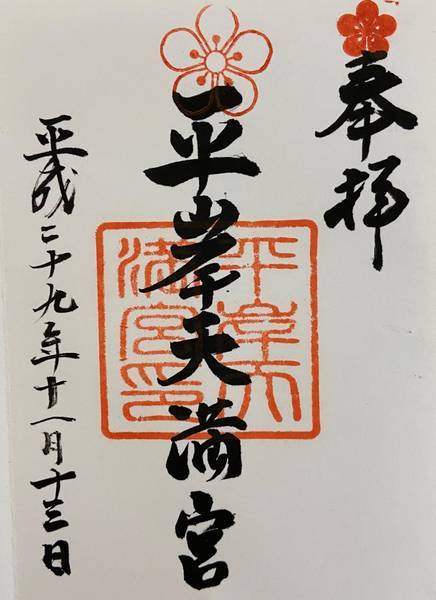 奉拝
平岸天満宮
平岸天
満宮印
平成二十九年十一月十三日